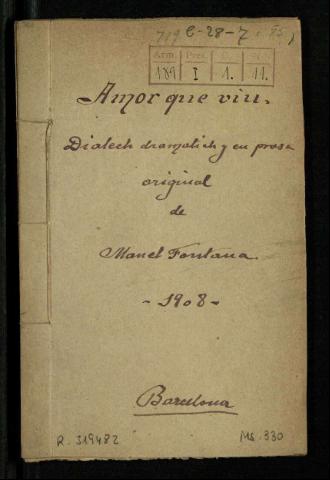 C-28-7
Arm. Pres.
189 I 1. 11.
Amor que viu.
Dialech dramatich y en prosa
original
de
Manel Fontana
- 1908 -
Barcelona
R. 319482
Ms. 330